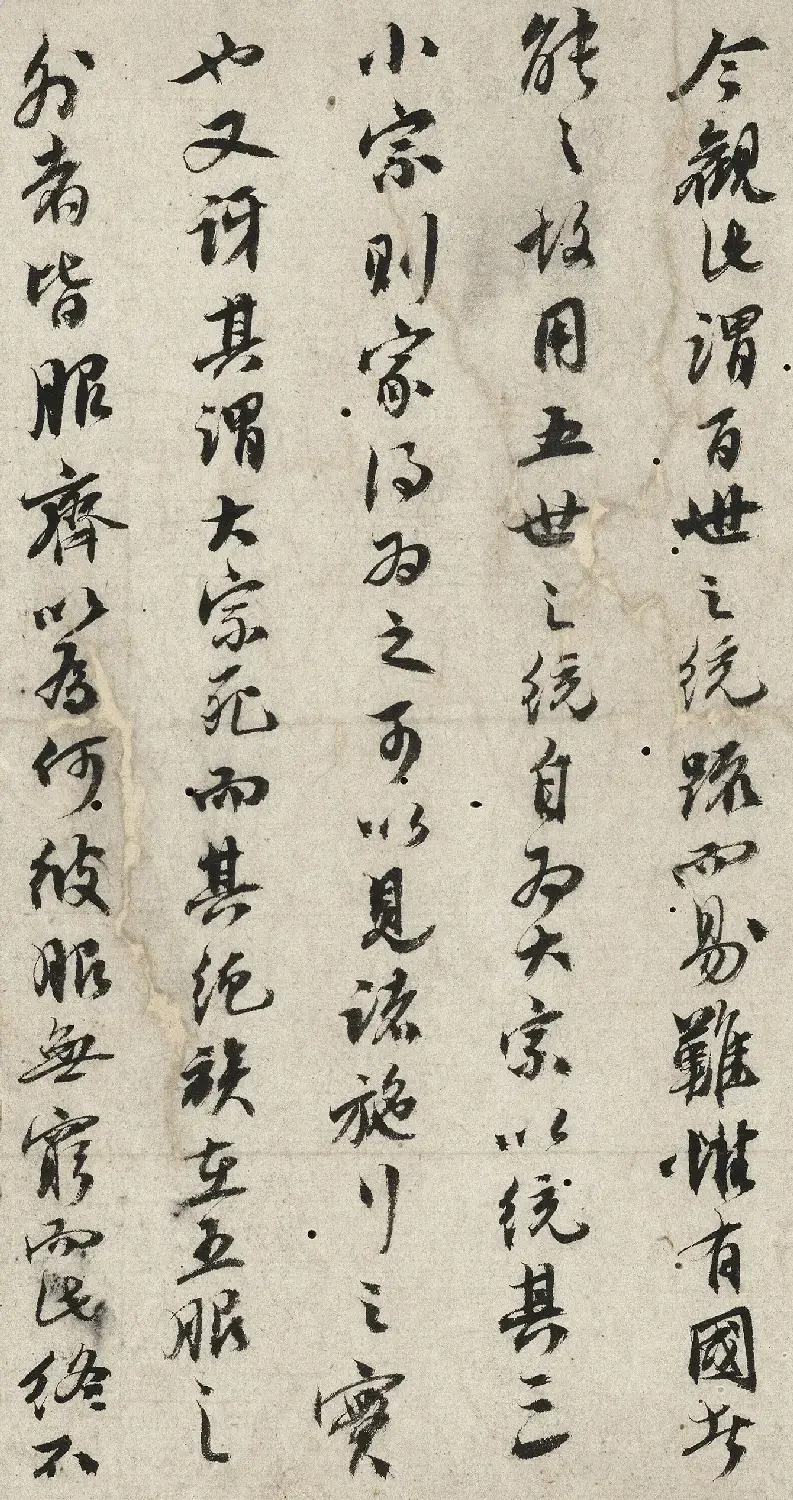 今觀此謂百世之統踈而易難惟有國者
能之故用五世之統自為大宗以統其三
小宗則家家得為之可以見諸施行之實
也又訝其謂大宗死而其絕族在五服之
外者皆服齊以為何彼服無窮而此終不